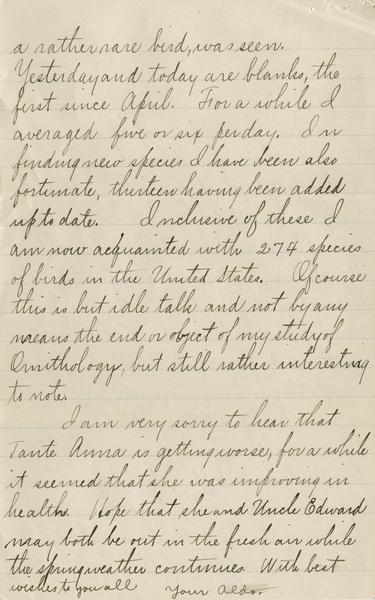 a rather rare bird, was seen.
Yesterday and today are blanks, the
first since April. For a while I
averaged five or six per day. In
finding new species I have been also
fortunate, thirteen having been added
up to date. Inclusive of these I
am now acquainted with 274 species
of birds in the United States. Of course
this is but idle talk and not by any
means the end or object of my study of
Ornithology, but still rather interesting
to note.
I am very sorry to hear that
Tante Anna is getting worse, for a while
it seemed that she was improving in
health. Hope that she and Uncle Edward
may both be out in the fresh air while
the spring weather continues. With best
wishes to you all Your Aldo.